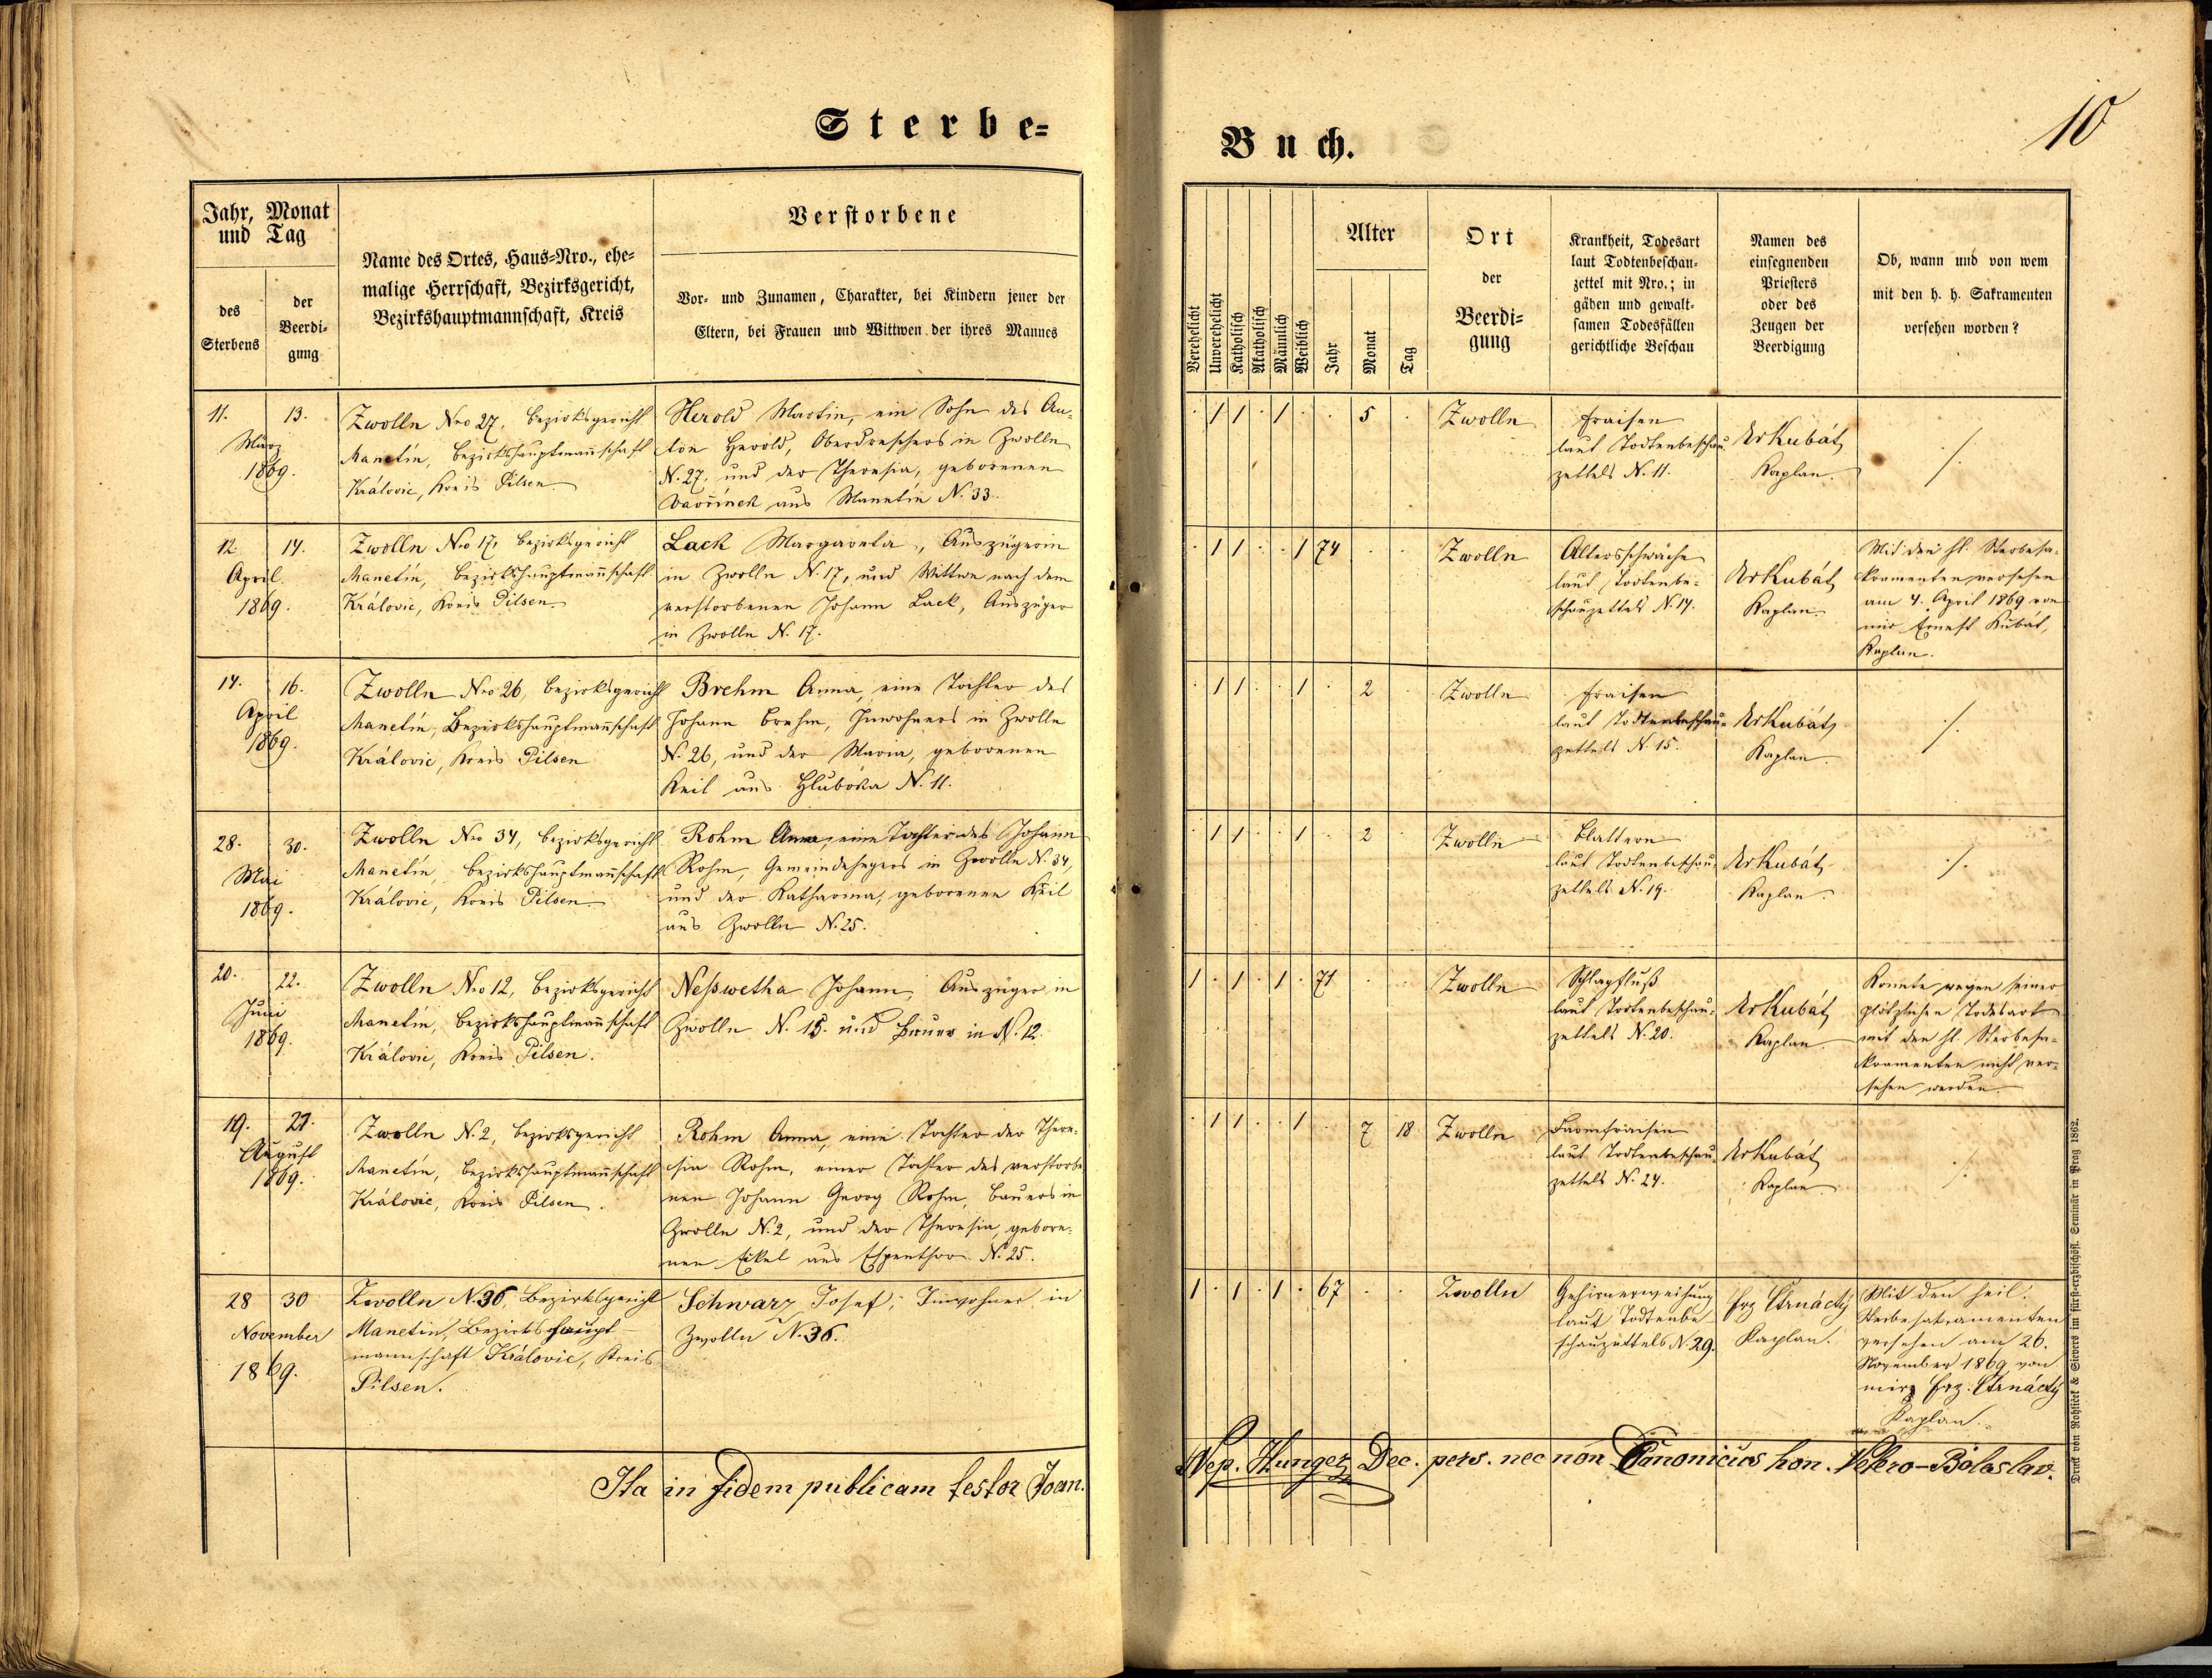 Sterbe=
Jahr, Monat
und Tag
des
Sterbens
der
Beerdi=
gung
Name des Ortes, Haus=Nro., ehe=
malige Herrschaft, Bezirksgericht,
Bezirkshauptmannschaft, Kreis
Verstorbene
Vor= und Zunamen, Charakter, bei Kindern jener der
Eltern, bei Frauen und Wittwen der ihres Mannes
11. 13.
März
1869.
Zwolln Nro 27, Bezirksgericht
Manetín, Bezirkshauptmannschaft
Královic, Kreis Pilsen.
Herold Martin, ein Sohn des An=
ton Herold, Oberdreschers in Zwolln
N. 27, und der Theresia, geborenen
Vavřínek aus Manetín N. 33.
12. 14.
April.
1869.
Zwolln Nro 17, Bezirksgericht
Manetín, Bezirkshauptmannschaft
Královic, Kreis Pilsen.
Lack Margaretha, Auszügerin
in Zwolln N. 17, und Wittwe nach dem
verstorbenen Johann Lack, Auszüger
in Zwolln N. 17.
14. 16.
April
1869.
Zwolln Nro 26, Bezirksgericht
Manetín, Bezirkshauptmannschaft
Královic, Kreis Pilsen
Brehm Anna, eine Tochter des
Johann Brehm, Inwohners in Zwolln
N. 26, und der Maria, geborenen
Keil aus Hluboka N. 11.
28. 30.
Mai
1869.
Zwolln Nro 34, Bezirksgericht
Manetín, Bezirkshauptmannschaft
Královic, Kreis Pilsen
Rohm Anna, eine Tochter des Johann
Rohm, Gemeindehegers in Zwolln N. 34,
und der Katharina, geborenen Keil
aus Zwolln N. 25.
20. 22.
Juni
1869.
Zwolln Nro 12, Bezirksgericht
Manetín, Bezirkshauptmannschaft
Královic, Kreis Pilsen.
Neßwetha Johann, Auszüger in
Zwolln N. 15. und Bauer in N. 12.
19. 21.
August
1869.
Zwolln N. 2, Bezirksgericht
Manetín, Bezirkshauptmannschaft
Královic, Kreis Pilsen.
Rohm Anna, eine Tochter der There=
sia Rohm, einer Tochter des verstorbe
nen Johann Georg Rohm, Bauers in
Zwolln N. 2, und der Theresia, gebore=
nen Eckel aus Espenthor N. 25.
28 30
November
1869.
Zwolln N. 36, Bezirksgericht
Manetin, Bezirkshaupt-
mannschaft Královic, Kreis
Pilsen.
Schwarz Josef, Inwohner in
Zwolln N. 36.
Ita in fidem publicam testor Joan.
Buch.
10
Verehelicht
Unverehelicht
Katholisch
Akatholisch
Männlich
Weiblich
Alter
Jahr
Monat
Tag
Ort
der
Beerdi=
gung
Krankheit, Todesart
laut Todtenbeschau=
zettel mit Nro.; in
gähen und gewalt=
samen Todesfällen
gerichtliche Beschau
Namen des
einsegnenden
Priesters
oder des
Zeugen der
Beerdigung
Ob, wann und von wem
mit den h. h. Sakramenten
versehen worden?
· 1 1 · 1 · · 5 ·
Zwolln
Fraisen
laut Todtenbeschau
zettels N. 11.
ErKubát,
Kaplan.
·/.
· 1 1 · · 1 74 · ·
Zwolln
Altersschwäche
laut Todtenbe=
schauzettels N. 14.
ErKubát,
Kaplan.
Mit den hl. Sterbesa=
kramenten versehen
am 4. April 1869 von
mir Ernest Kubát,
Kaplan.
· 1 1 · · 1 · 2 ·
Zwolln
Fraisen
laut Todtenbeschau=
zettels N. 15.
ErKubát,
Kaplan.
·/.
· 1 1 · · 1 · 2 ·
Zwolln
Blattern
laut Todtenbeschau=
zettels N. 19.
ErKubát,
Kaplan.
·/.
1 · 1 · 1 · 71 · ·
Zwolln
Schlagfluß
laut Todtenbeschau=
zettels N. 20.
ErKubát,
Kaplan
Konnte wegen seiner
plötzlichen Todesart
mit den hl. Sterbesa=
kramenten nicht ver=
sehen werden.
· 1 1 · · 1 · 7 18
Zwolln
Darmfraisen
laut Todtenbeschau=
zettels N. 24.
ErKubát,
Kaplan.
·/.
1 · 1 · 1 · 67 · ·
Zwolln
Gehirnerweichung
laut Todtenbe
schauzettels N 29.
Frz Strnáctý
Kaplan.
Mit den heil.
Sterbesakramenten
versehen am 26.
November 1869 von
mir Frz. Strnáctý
Kaplan.
Nep. Hunger, Dec. pers. nec non Canonicus hon. Vetero-Boleslav.
Druck von Rohliček & Sievers im fürsterzbischöfl. Seminär in Prag 1862.